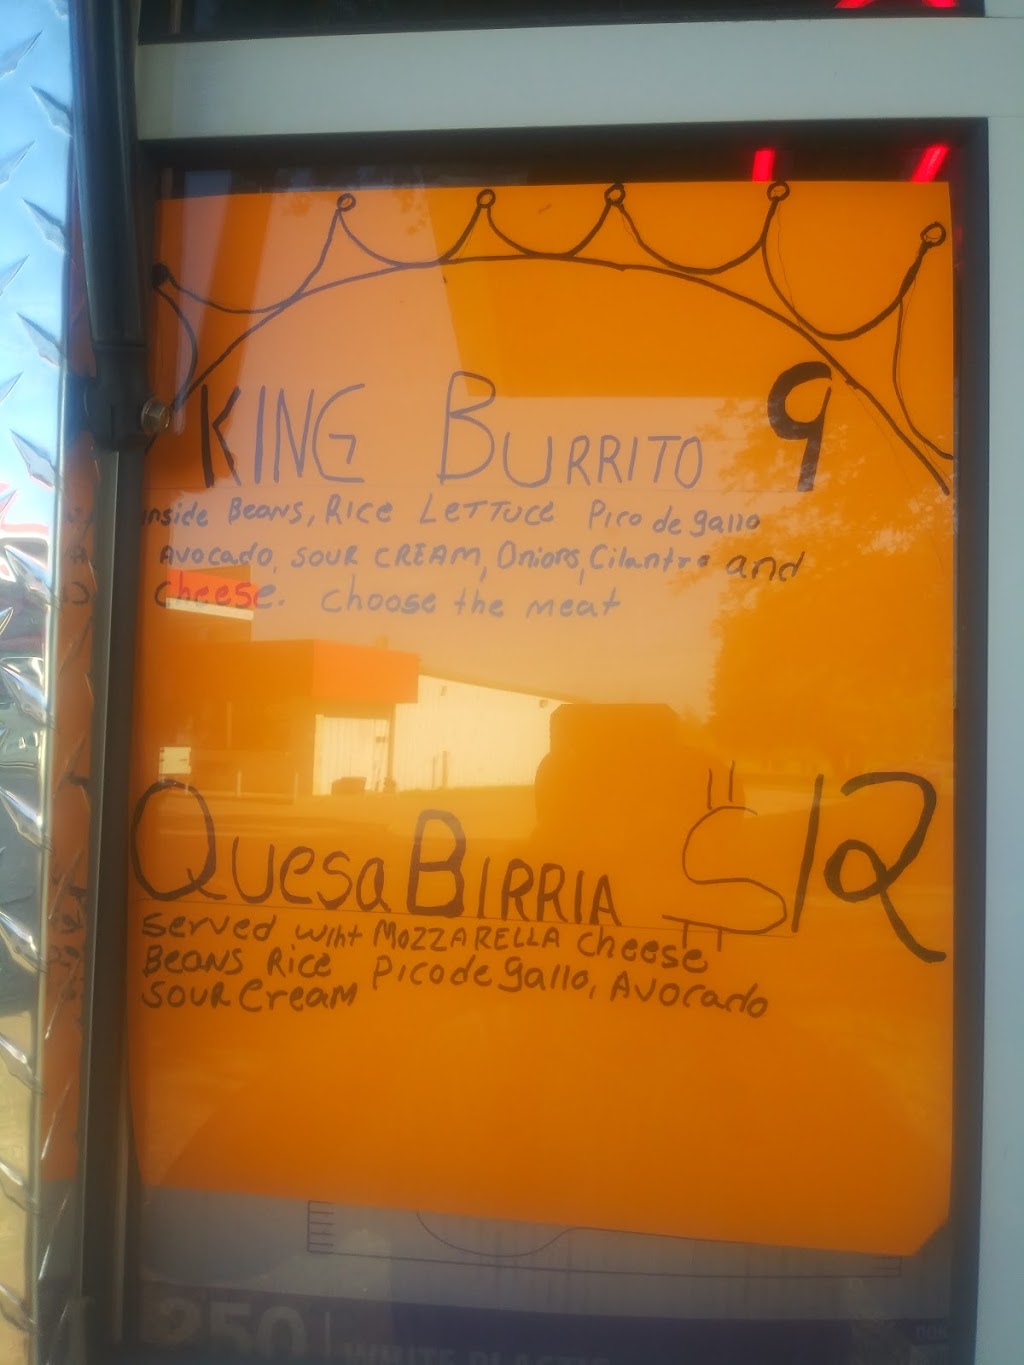 KING BURRITO 9
inside Beans, Rice Lettuce Pico de gallo
Avocado, sour cream, Onions, Cilantro and
Cheese. Choose the meat
QuesaBIRRIA $12
served wiht MOZZARELLA cheese
Beans Rice Pico de gallo, Avocado
sour Cream
250
WHITE PLASTIC